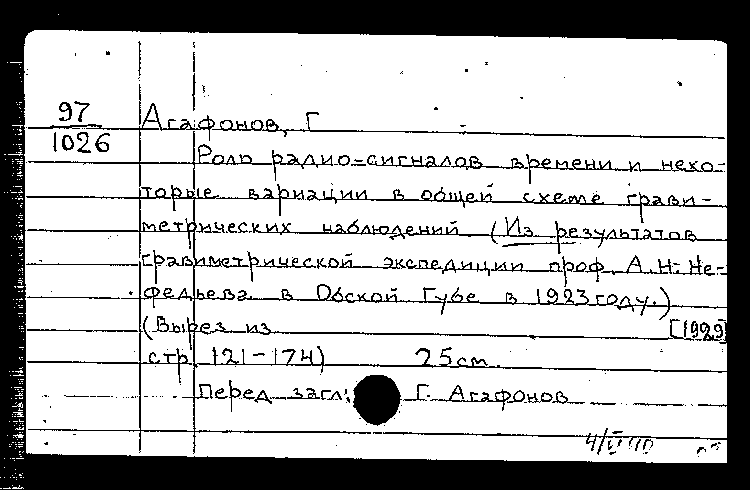 97
1026
Агафонов, Г
Роль радио-сигналов времени и неко-
торые вариации в общей схеме грави-
метрических наблюдений (Из результатов
гравиметрической экспедиции проф. А.Н. Не-
федьева в Обской Губе в 1923 году.)
(Вырез из
[1929]
стр. 121-174) 25см.
Перед загл: Г. Агафонов